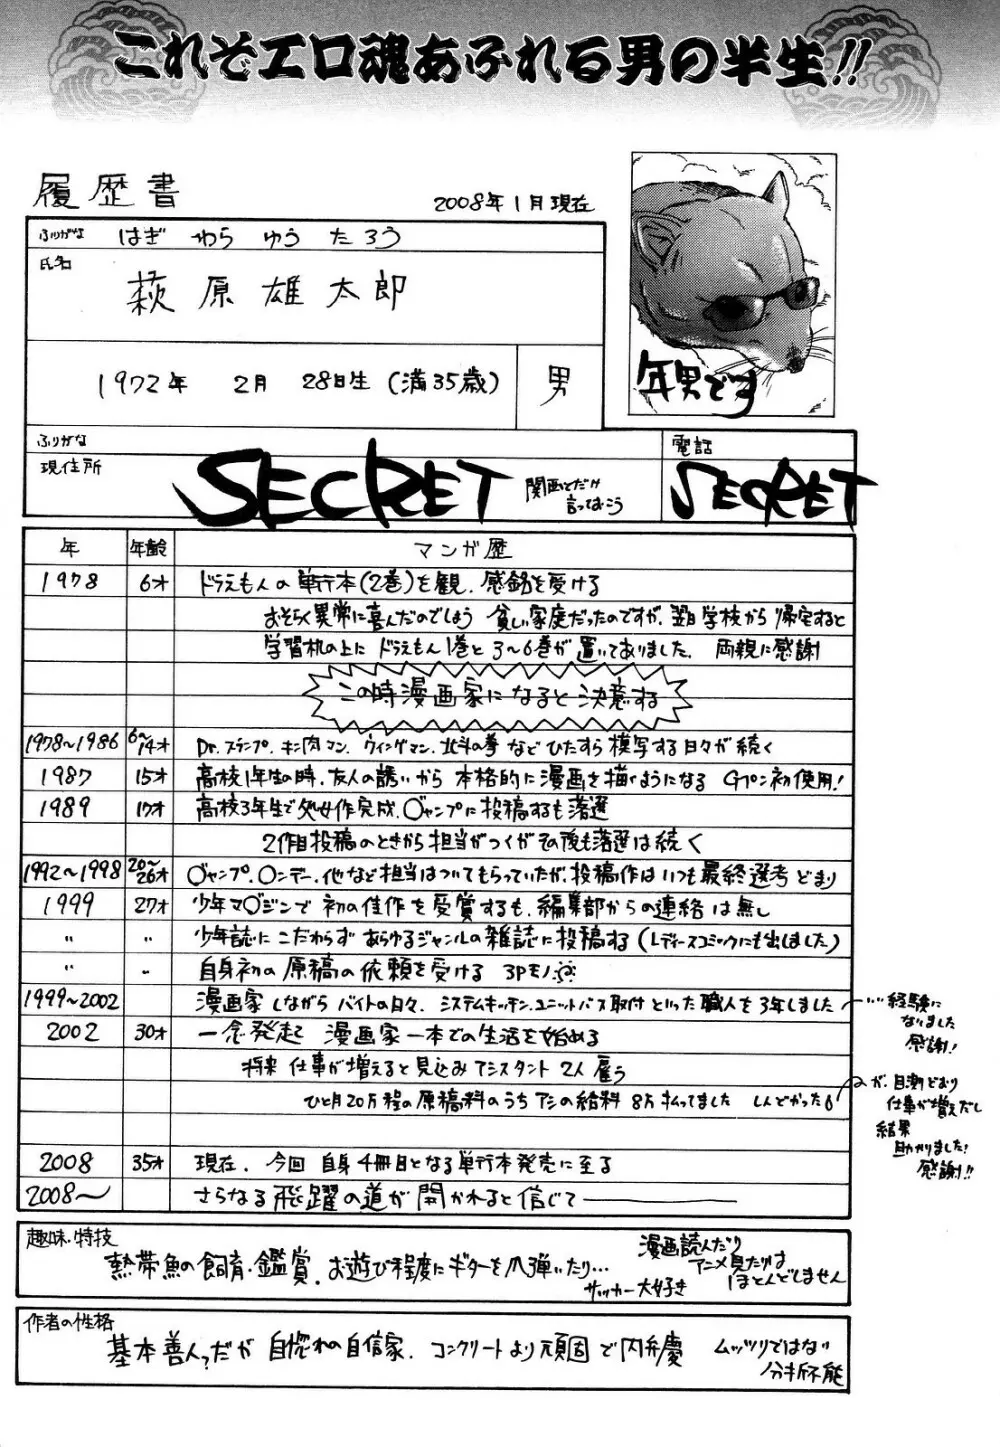 これぞエロ魂あふれる男の半生!!
履歴書
2008年1月現在
ふりがな はぎ わら ゆう たろう
氏名
萩原雄太郎
1972年 2月 28日生(満35歳)
男
年男です
ふりがな
現住所
SECRET
関西とだけ
言っておこう
電話
SECRET
年 年齢 マンガ歴
1978 6才 ドラえもんの単行本(2巻)を観、感銘を受ける
おそらく異常に喜んだのでしょう 貧しい家庭だったのですが、翌日学校から帰宅すると
学習机の上にドラえもん1巻と3〜6巻が置いてありました。両親に感謝
この時漫画家になると決意する
1978〜1986 6〜14才 Dr.スランプ、キン肉マン、ウィングマン、北斗の拳などひたすら模写する日々が続く
1987 15才 高校1年生の時、友人の誘いから本格的に漫画を描くようになる Gペン初使用!
1989 17才 高校3年生で処女作完成、○ャンプに投稿するも落選
2作目投稿のときから担当がつくがその後も落選は続く
1992〜1998 20〜26才 ○ャンプ、○ンデー、他など担当はついてもらっていたが、投稿作はいつも最終選考どまり
1999 27才 少年マ○ジンで初の佳作を受賞するも、編集部からの連絡は無し
〃 〃 少年誌にこだわらずあらゆるジャンルの雑誌に投稿する(レディースコミックにも出しました)
〃 〃 自身初の原稿の依頼を受ける 3Pモノ
1999〜2002 漫画家しながらバイトの日々、システムキッチン、ユニットバス取付といった職人を3年しました
…経験に
なりました
感謝!
2002 30才 一念発起 漫画家一本での生活を始める
将来仕事が増えると見込みアシスタント2人雇う
ひと月20万程の原稿料のうちアシの給料8万払ってました しんどかった
が、目測どおり
仕事が増えだし
結果
助かりました!
感謝!!
2008 35才 現在、今回自身4冊目となる単行本発売に至る
2008〜 さらなる飛躍の道が開かれると信じて――
趣味・特技
熱帯魚の飼育・鑑賞、お遊び程度にギターを爪弾いたり…
サッカー大好き
漫画読んだり
アニメ見たりは
ほとんどしません
作者の性格
基本善人?だが自惚れの自信家、コンクリートより頑固で内弁慶
ムッツリではない
分析不能